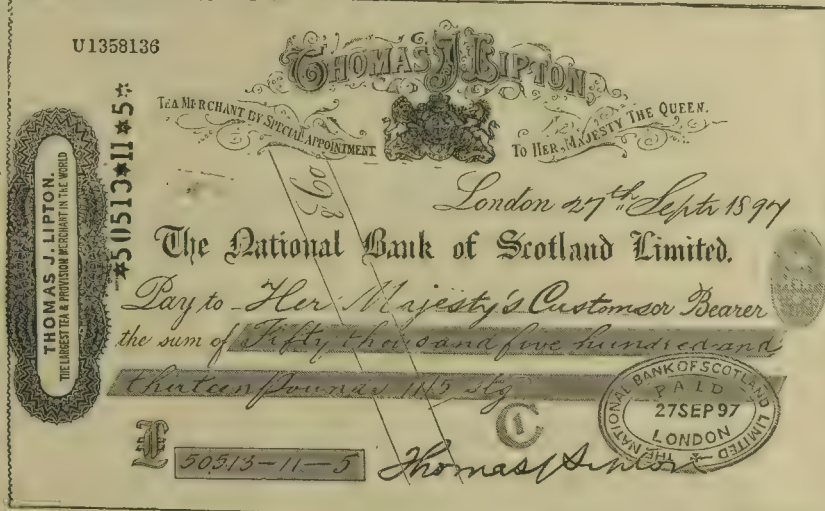 U1358136
THOMAS J. LIPTON,
TEA MERCHANT BY SPECIAL APPOINTMENT
TO HER MAJESTY THE QUEEN.
*50513*11*5*
THOMAS J. LIPTON.
THE LARGEST TEA & PROVISION MERCHANT IN THE WORLD
& Co
London 27th Septr 1897
The National Bank of Scotland Limited.
Pay to Her Majesty's Customs or Bearer
the sum of Fifty thousand five hundred and
thirteen pounds 11/5 stg
£ 50513-11-5
C1
Thomas J Lipton
THE NATIONAL BANK OF SCOTLAND LIMITED
PAID
27 SEP 97
LONDON